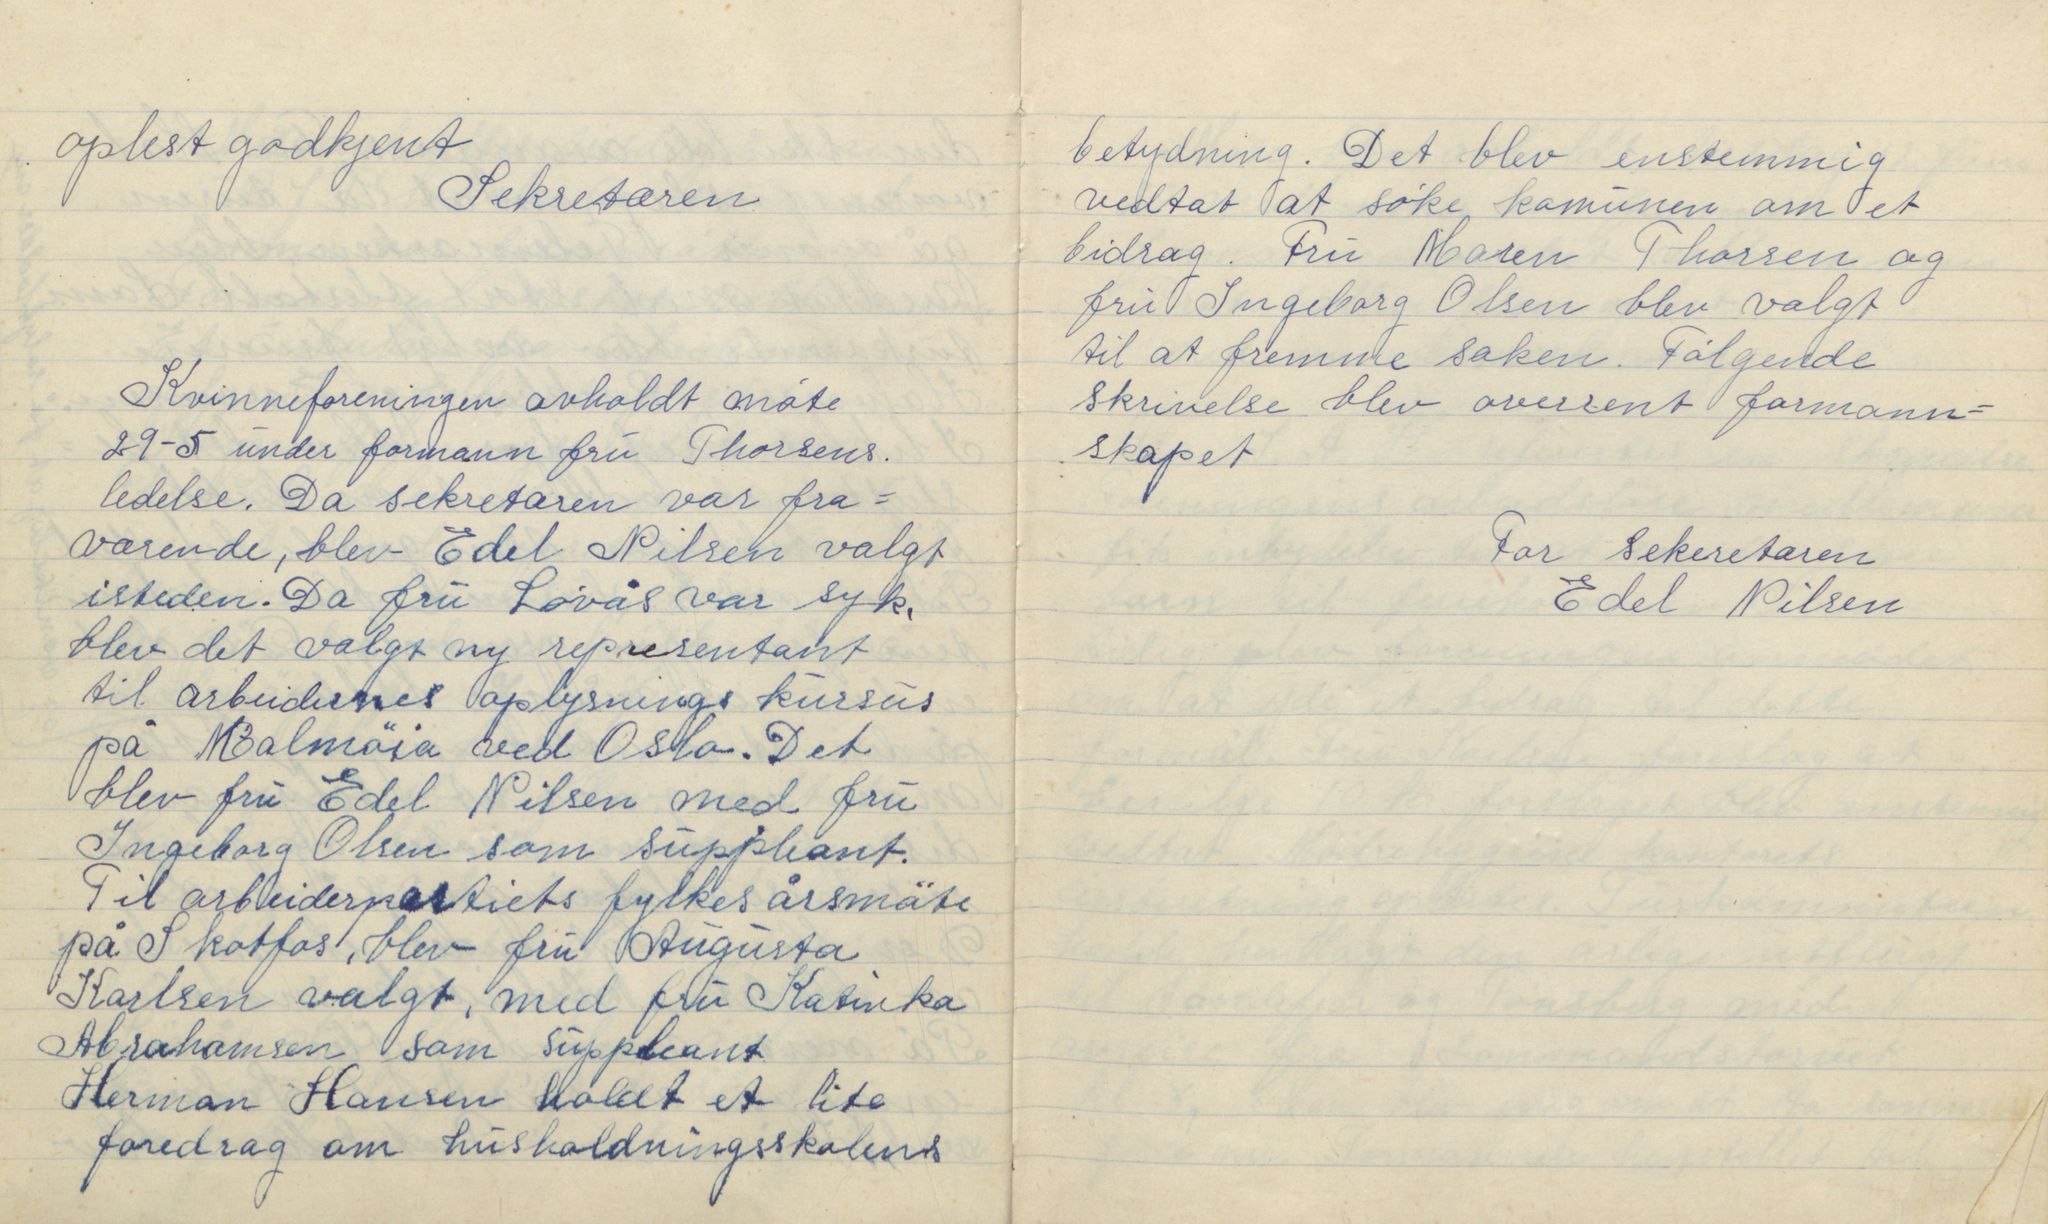 oplest godkjent
Sekretæren
Kvinneforeningen avholdt møte
29-5 under formann fru Thorsens.
ledelse. Da sekretæren var fra=
værende, blev Edel Nilsen valgt
isteden. Da fru Løvås var syk,
blev det valgt ny representant
til arbeidernes oplysnings kursus
på Malmöia ved Oslo. Det
blev fru Edel Nilsen med fru
Ingeborg Olsen som suppleant.
Til arbeiderpartiets fylkes årsmöte
på Skotfos, blev fru Augusta
Karlsen valgt, med fru Katinka
Abrahamsen som suppleant
Herman Hansen holdt et lite
foredrag om husholdningsskolens
betydning. Det blev enstemmig
vedtat at søke komunen om et
bidrag. Fru Maren Thorsen og
fru Ingeborg Olsen blev valgt
til at fremme saken. Følgende
skrivelse blev oversent formann=
skapet
For sekeretæren
Edel Nilsen